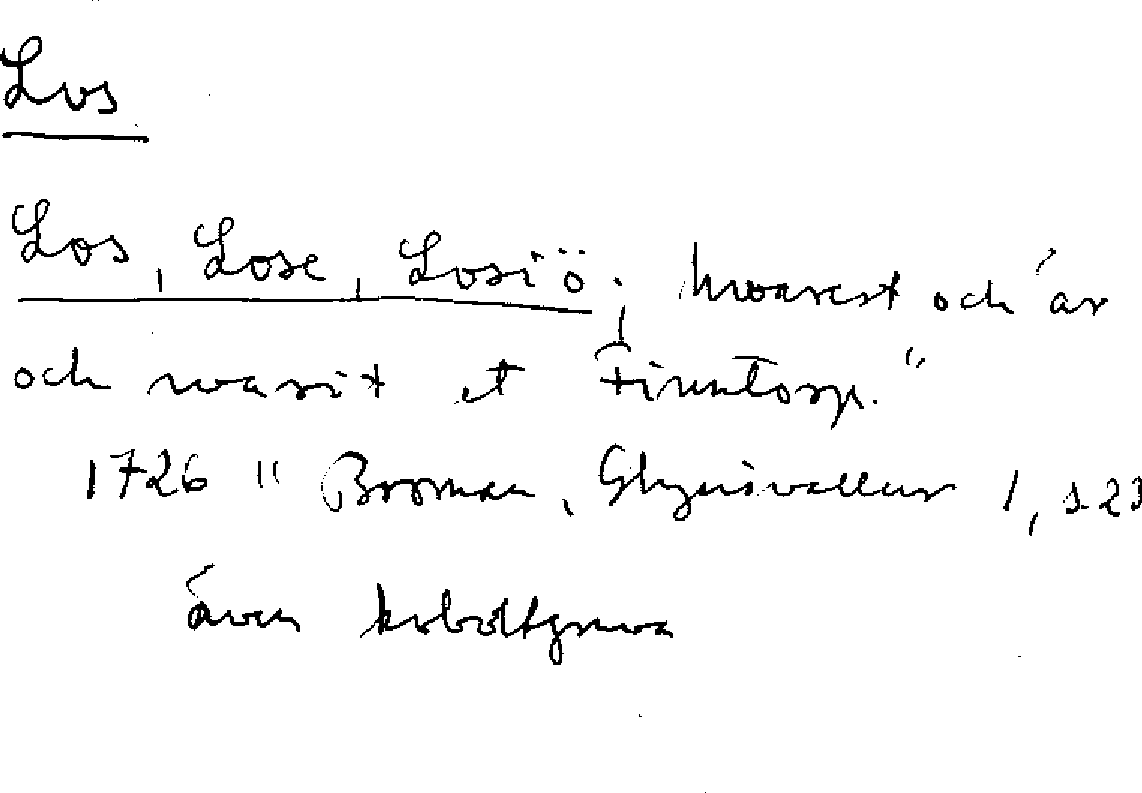 Los
Los, Lose, Losiö; hwarest och är
och warit et Finntorp."
1726 " Broman, Glysisvallur 1, s 23
även koboltgruva